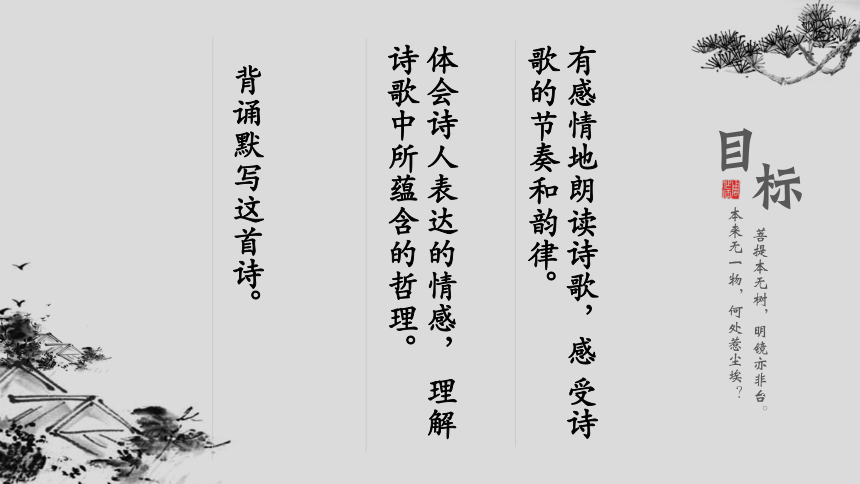 目标
菩提本无树，明镜亦非台。
本来无一物，何处惹尘埃？
有感情地朗读诗歌，感受诗
歌的节奏和韵律。
体会诗人表达的情感，理解
诗歌中所蕴含的哲理。
背诵默写这首诗。